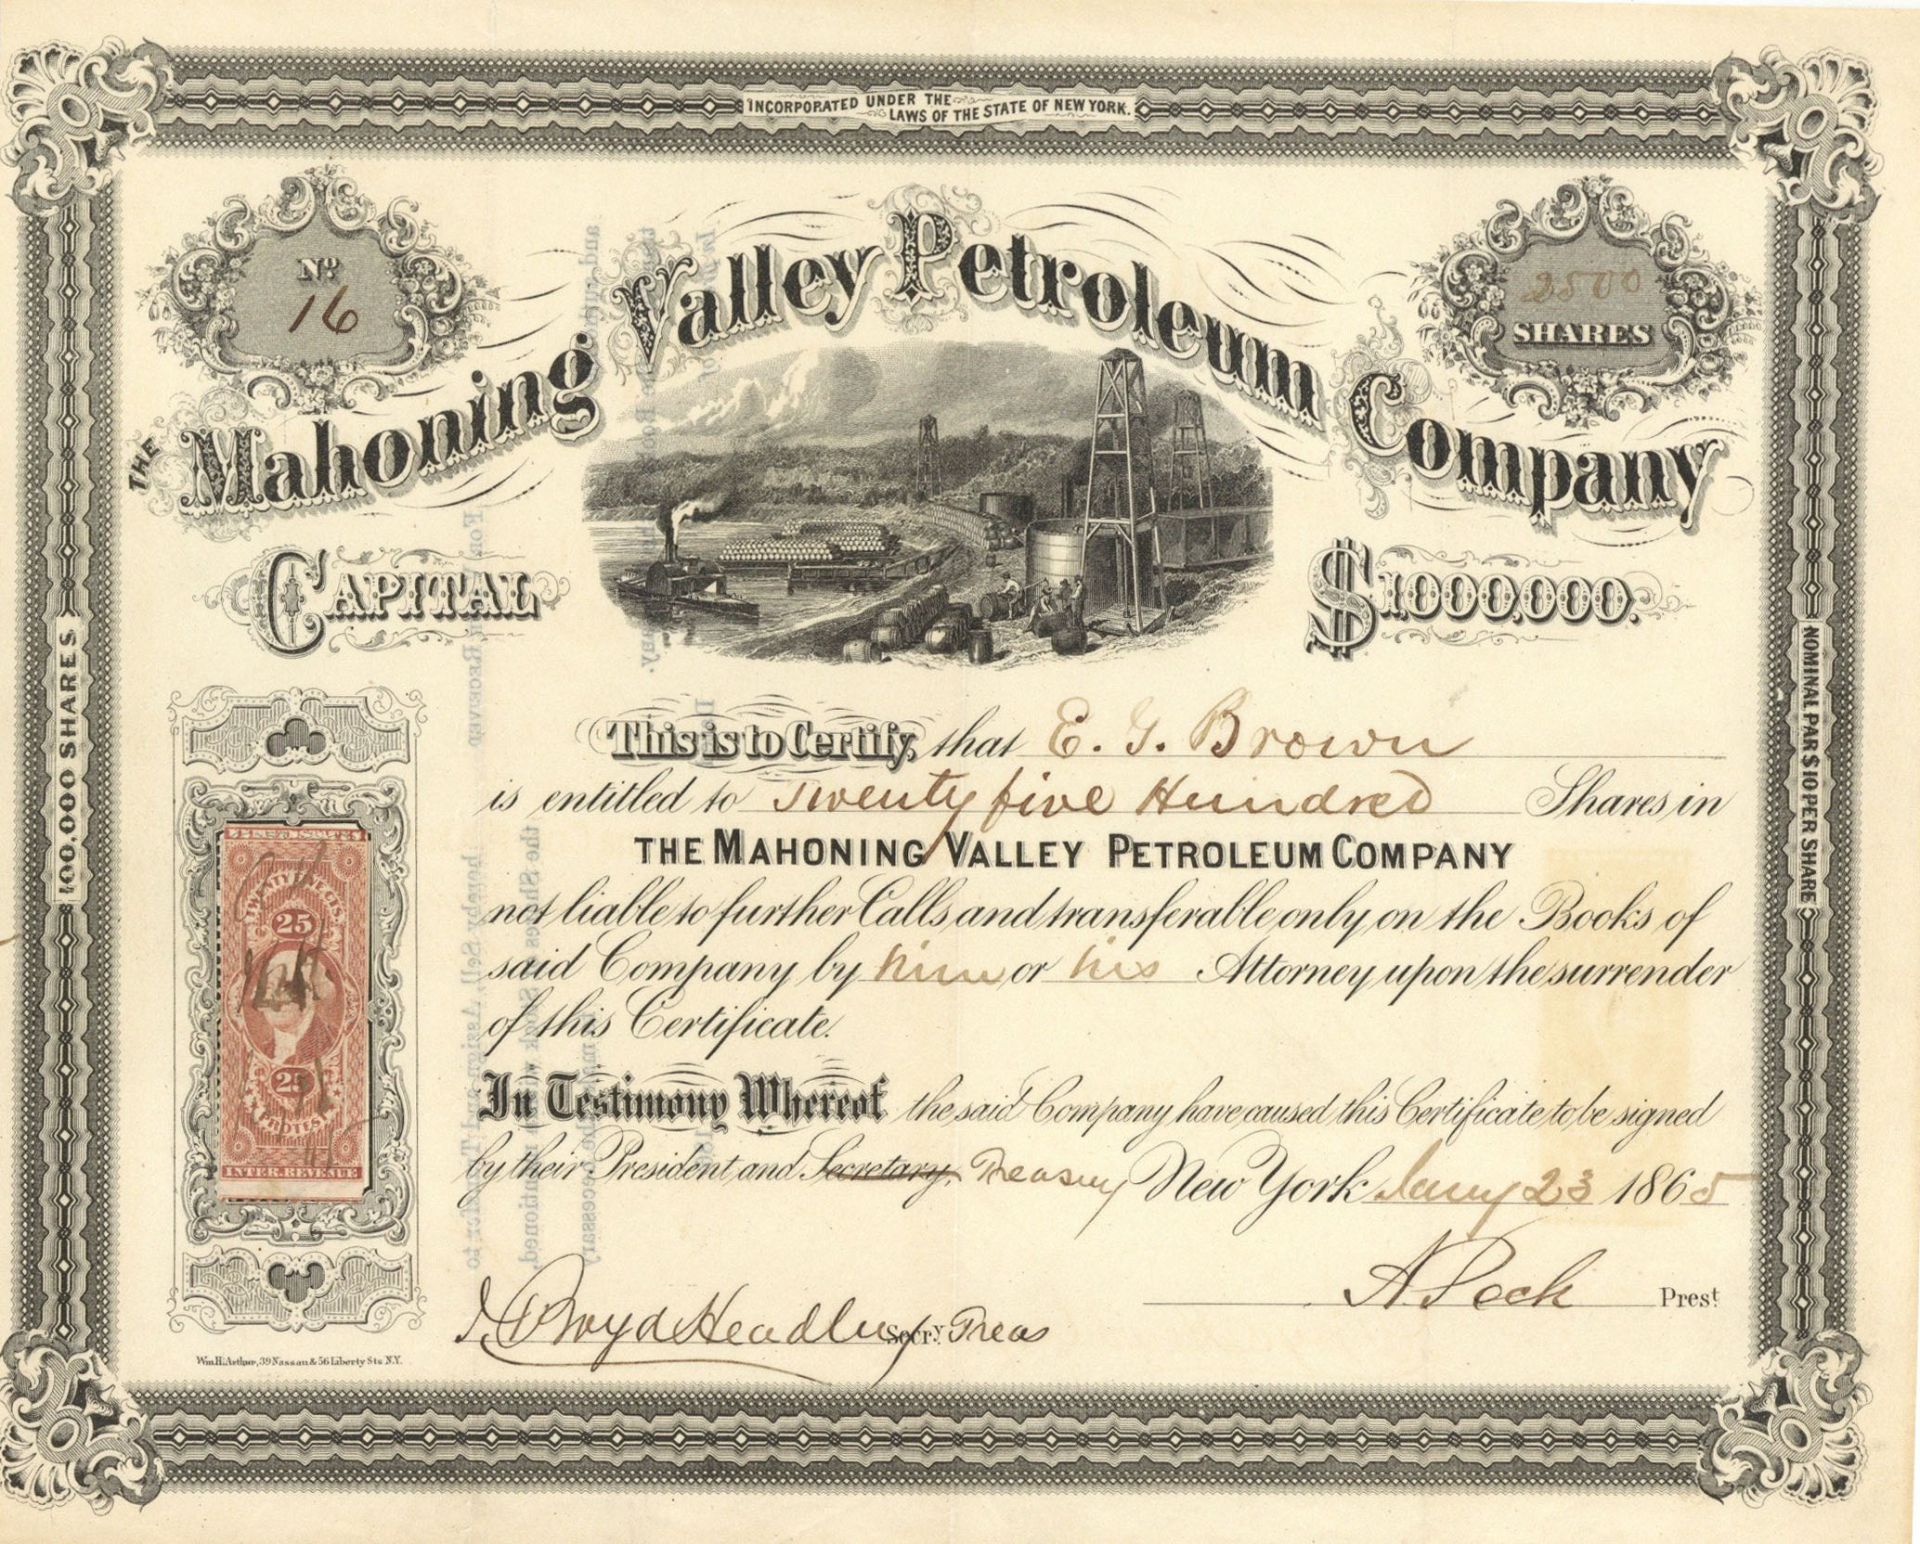 INCORPORATED UNDER THE
LAWS OF THE STATE OF NEW YORK.
No.
16
2500
SHARES
THE Mahoning Valley Petroleum Company
CAPITAL $1,000,000.
100,000 SHARES
NOMINAL PAR $10 PER SHARE
This is to Certify, that E. G. Brown
is entitled to Twenty five Hundred Shares in
THE MAHONING VALLEY PETROLEUM COMPANY
not liable to further Calls and transferable only on the Books of
said Company by him or his Attorney upon the surrender
of this Certificate.
In Testimony Whereof the said Company have caused this Certificate to be signed
by their President and Secretary. Treasury New York Jany 23 1865
A. Peck Prest
J. Boyd Headley Secry. Treas
UNITED STATES
TWENTY FIVE CTS.
25
25
PROTEST
INTER. REVENUE
Wm. H. Arthur, 39 Nassau & 56 Liberty Sts N.Y.